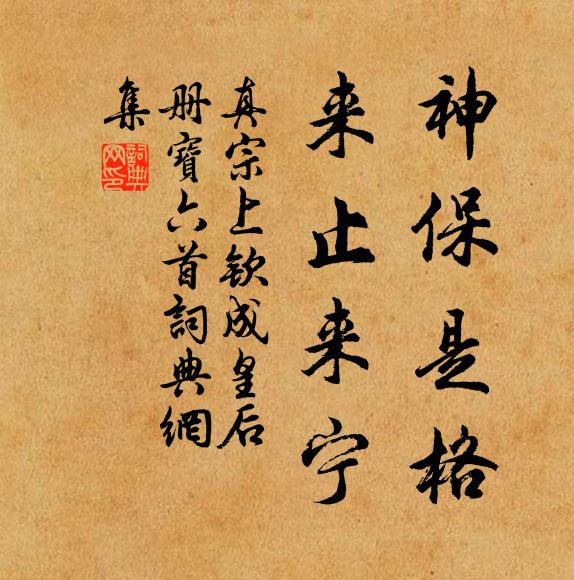 神保是格
来止来宁
真宗上钦成皇后
册寶六首詞典網
集
詞典
网印